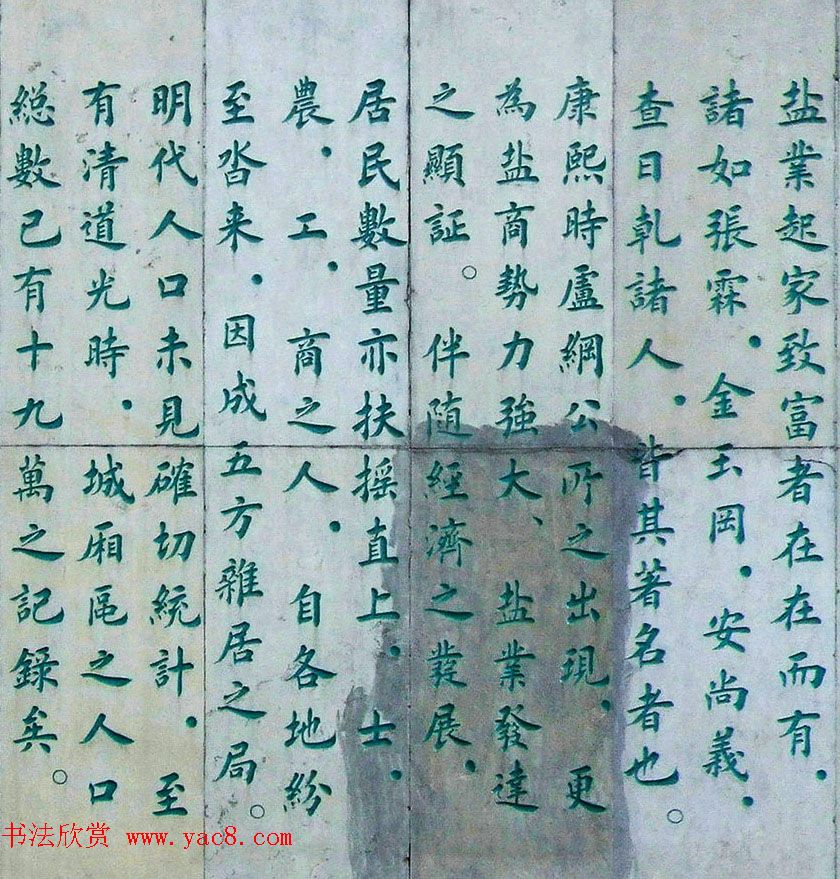 盐業起家致富者在在而有.
諸如張霖.金玉岡.安尚義.
查日乹諸人.皆其著名者也。
康熙時盧綱公所之出現.更
為盐商勢力強大、盐業發達
之顯証。伴随經濟之發展.
居民數量亦扶摇直上.士.
農.工.商之人.自各地紛
至沓来.因成五方雜居之局。
明代人口未見確切統計.至
有清道光時.城厢區之人口
総數已有十九萬之記錄矣。
书法欣赏 www.yac8.com